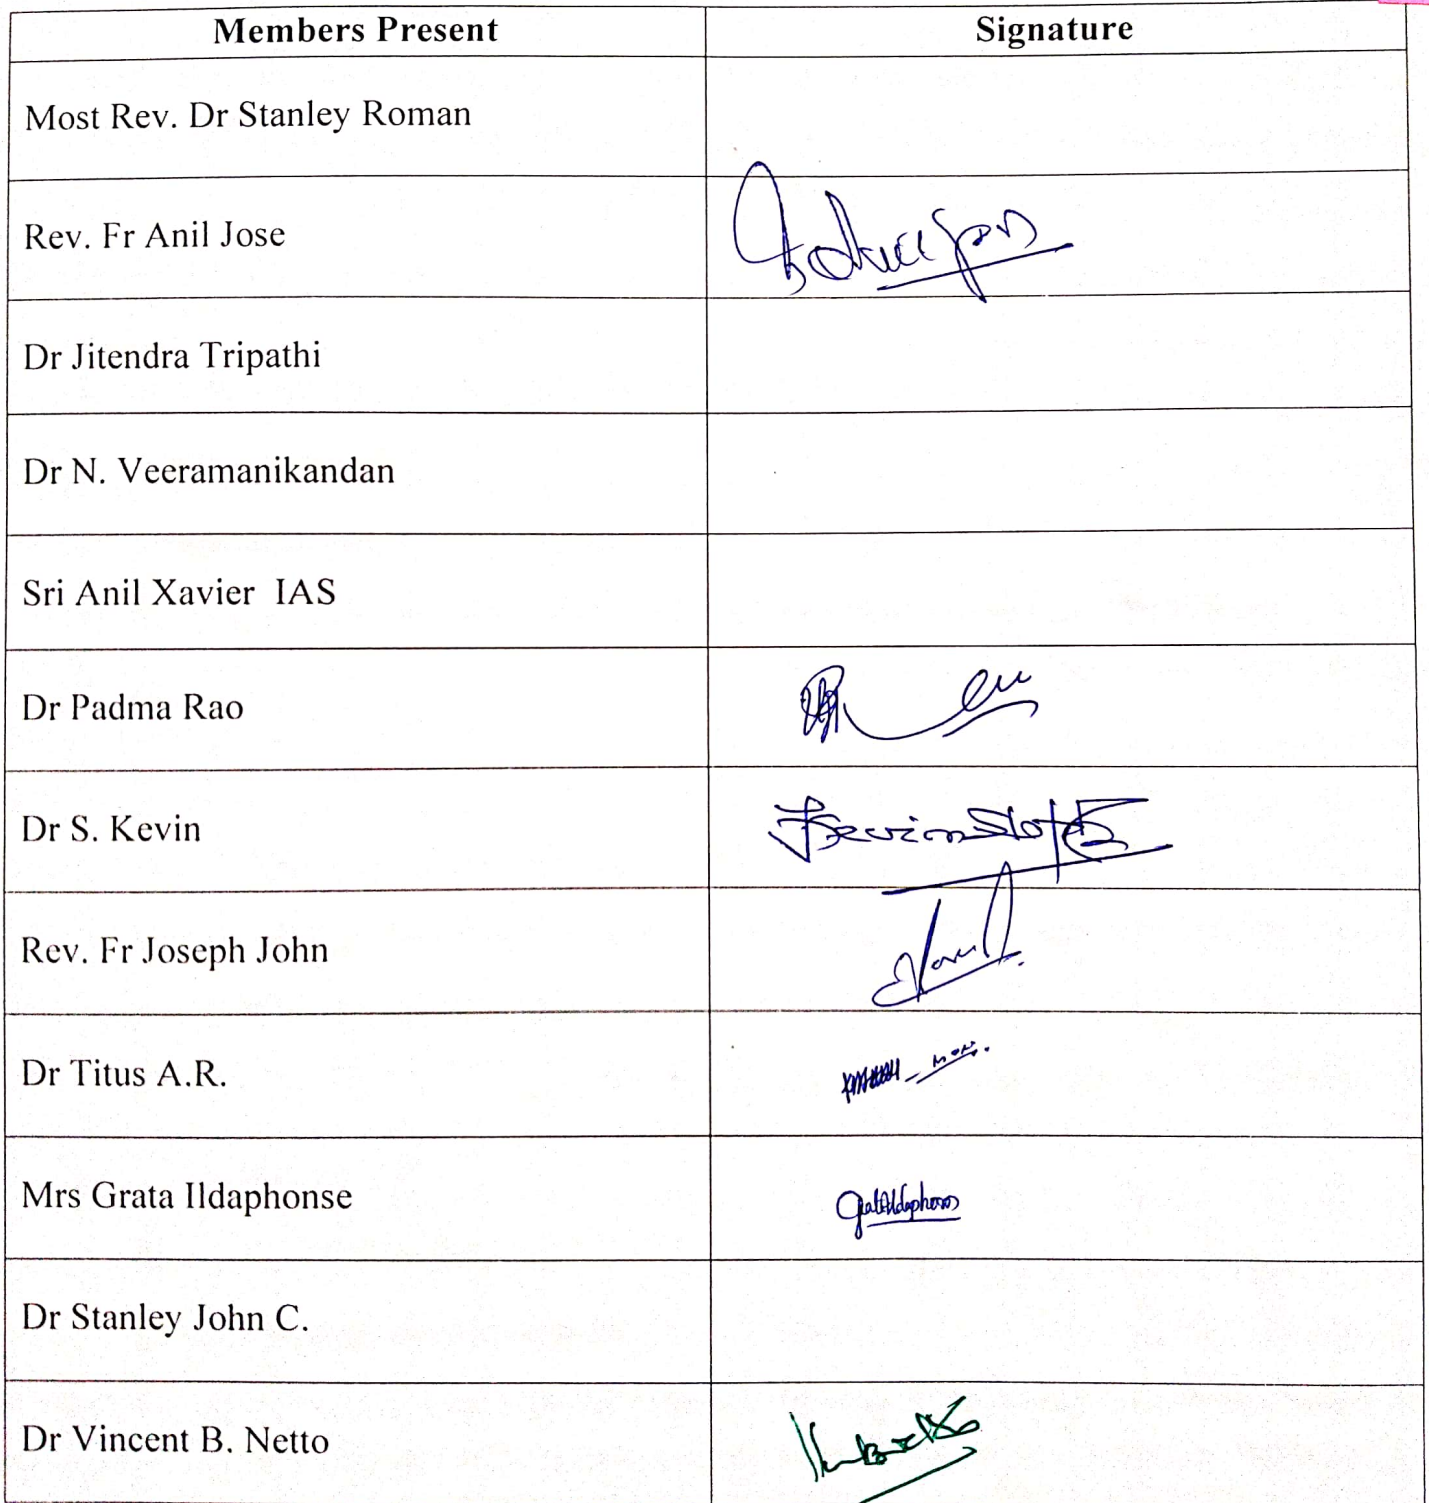 Members Present Signature
Most Rev. Dr Stanley Roman
Rev. Fr Anil Jose
Dr Jitendra Tripathi
Dr N. Veeramanikandan
Sri Anil Xavier IAS
Dr Padma Rao
Dr S. Kevin
Rev. Fr Joseph John
Dr Titus A.R.
Mrs Grata Ildaphonse
Dr Stanley John C.
Dr Vincent B. Netto